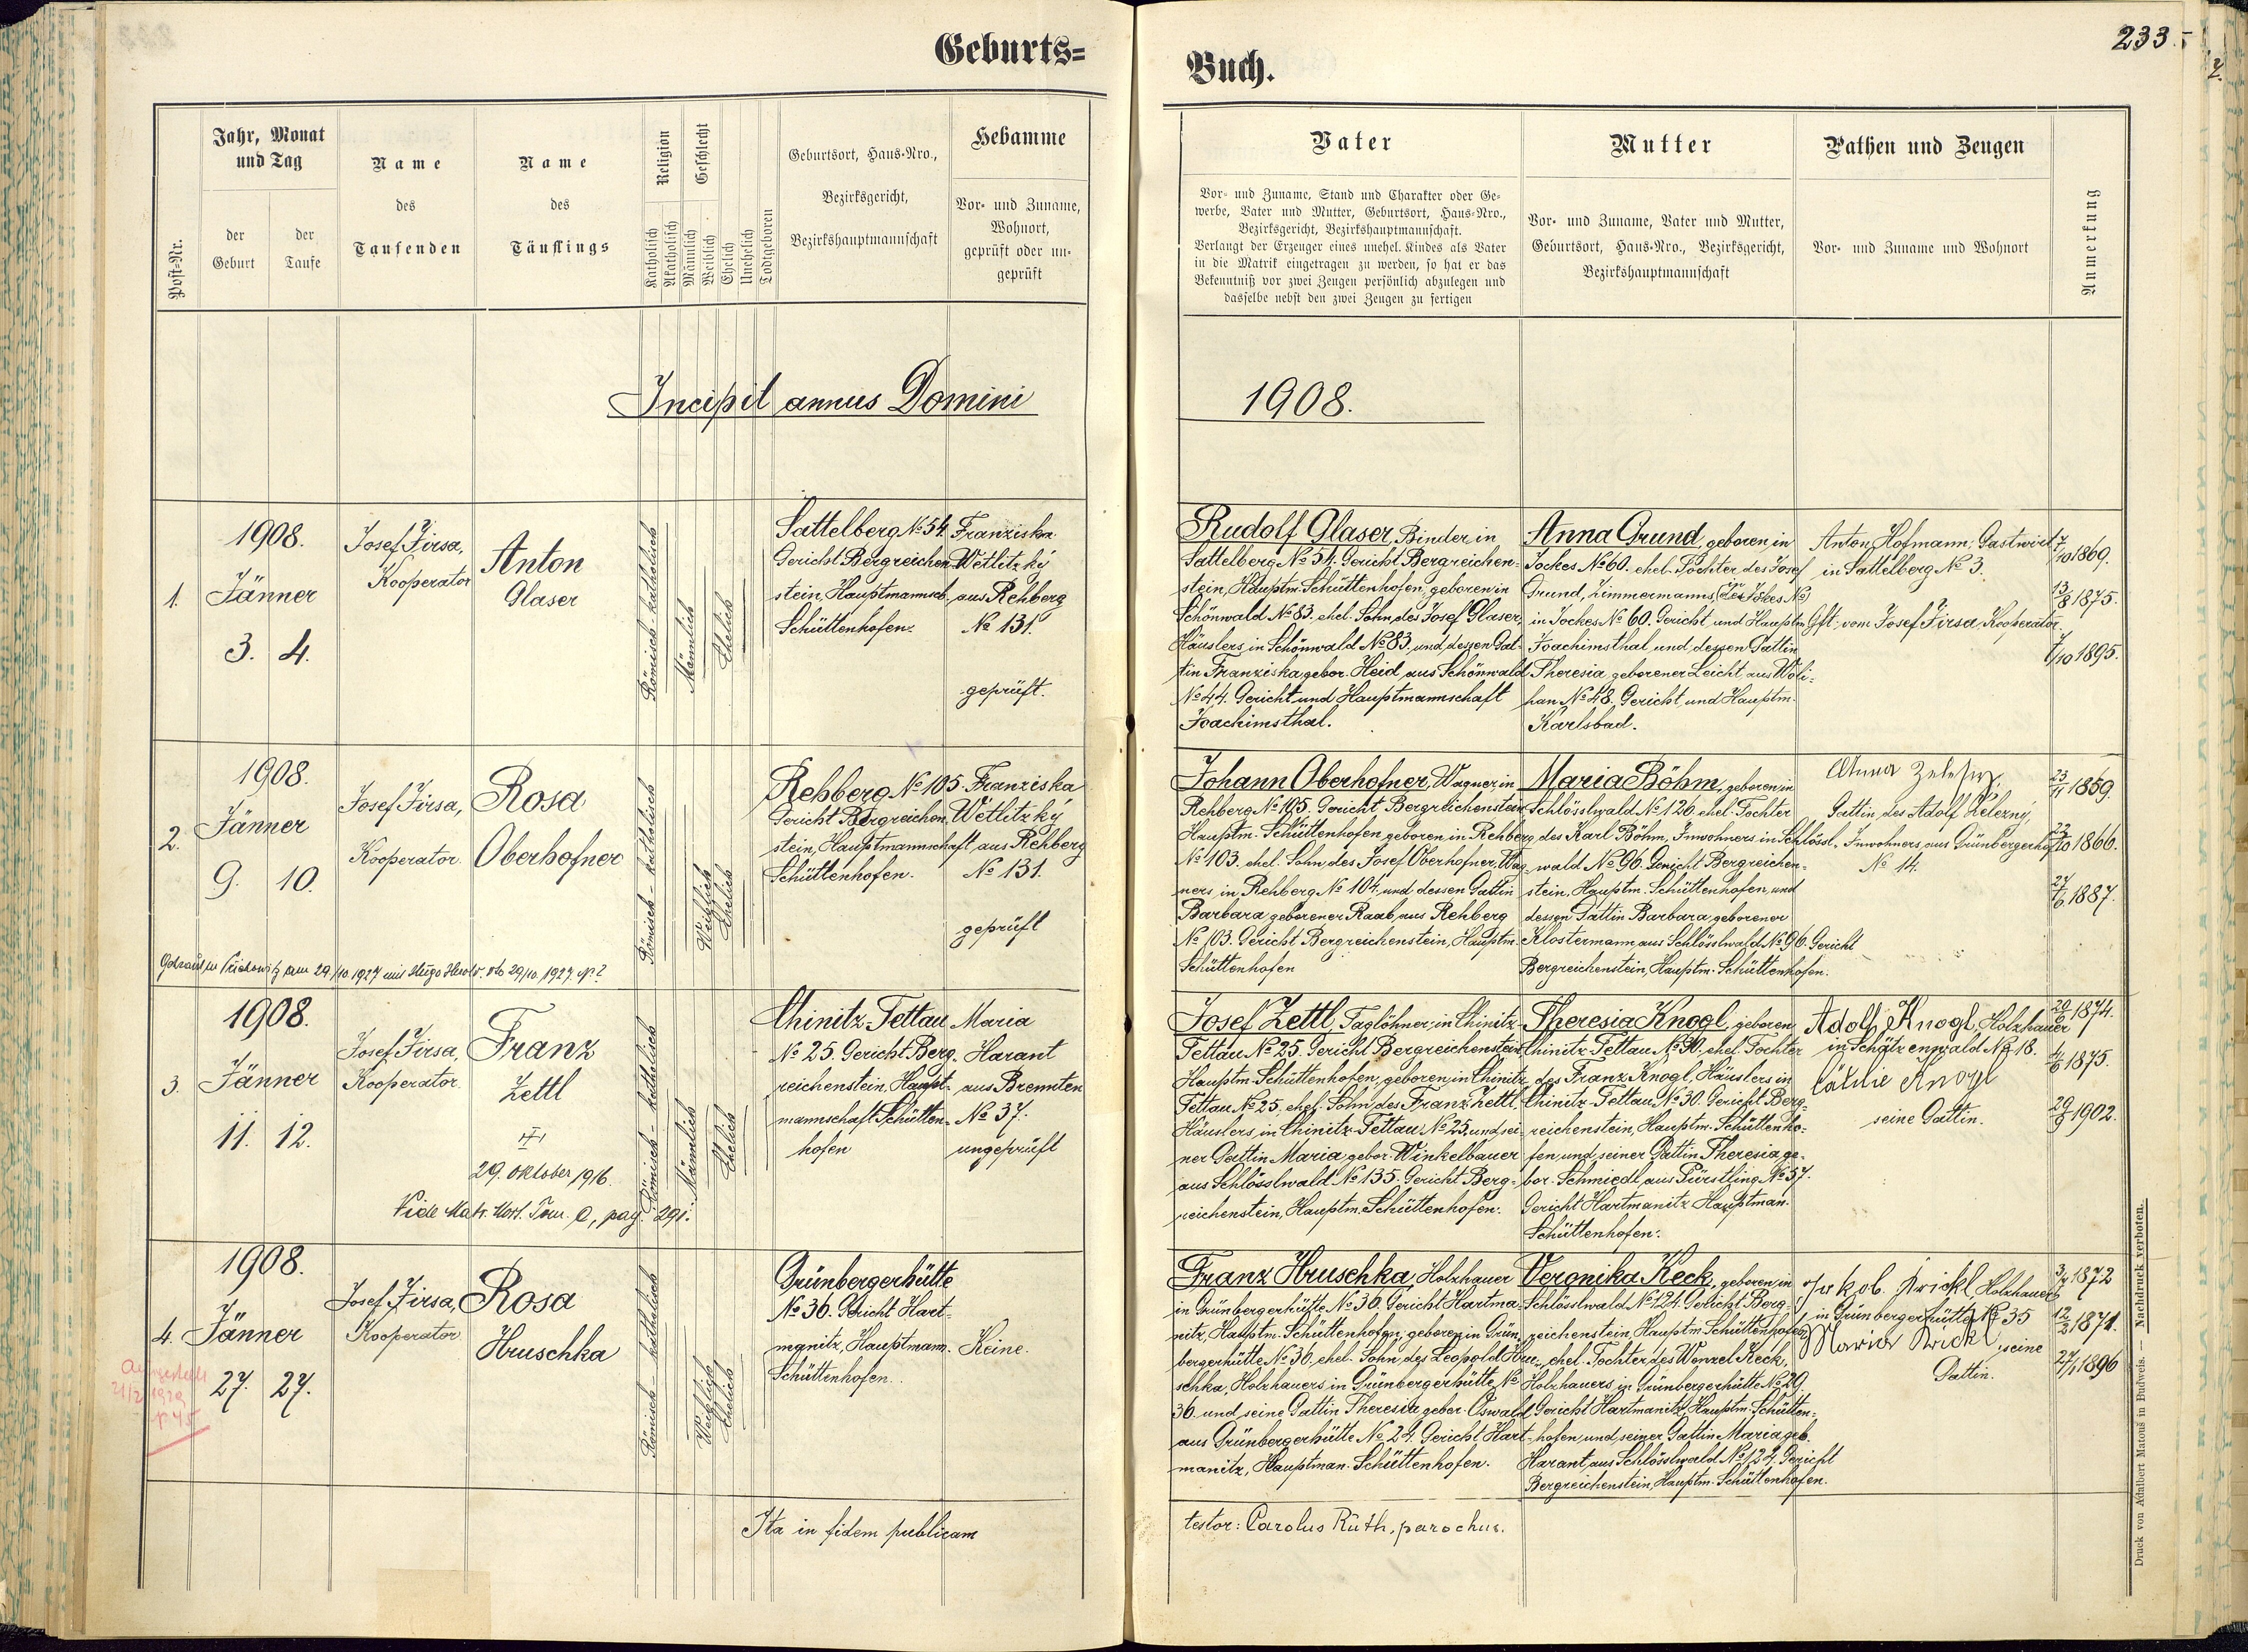 Geburts=
Buch.
233.
Post=Nr.
Jahr, Monat
und Tag
der
Geburt
der
Taufe
Name
des
Taufenden
Name
des
Täuflings
Religion
Katholisch
Akatholisch
Geschlecht
Männlich
Weiblich
Ehelich
Unehelich
Todtgeboren
Geburtsort, Haus=Nro.,
Bezirksgericht,
Bezirkshauptmannschaft
Hebamme
Vor= und Zuname,
Wohnort,
geprüft oder un=
geprüft
Vater
Vor= und Zuname, Stand und Charakter oder Ge=
werbe, Vater und Mutter, Geburtsort, Haus=Nro.,
Bezirksgericht, Bezirkshauptmannschaft.
Verlangt der Erzeuger eines unehel. Kindes als Vater
in die Matrik eingetragen zu werden, so hat er das
Bekenntniß vor zwei Zeugen persönlich abzulegen und
dasselbe nebst den zwei Zeugen zu fertigen
Mutter
Vor= und Zuname, Vater und Mutter,
Geburtsort, Haus=Nro., Bezirksgericht,
Bezirkshauptmannschaft
Pathen und Zeugen
Vor= und Zuname und Wohnort
Anmerkung
Incipit annus Domini
1908.
1.
1908.
Jänner
3. 4.
Josef Jirsa,
Kooperator
Anton
Glaser
Römisch-katholisch
Männlich
Ehelich
Sattelberg No 54.
Gericht Bergreichen=
stein, Hauptmannsch.
Schüttenhofen.
Franziska
Wetlitzký
aus Rehberg
No 131.
geprüft.
Rudolf Glaser, Binder in
Sattelberg No 54. Gericht Bergreichen=
stein, Hauptm. Schüttenhofen, geboren in
Schönwald No 83. ehel. Sohn des Josef Glaser,
Häuslers in Schönwald No 83. und dessen Gat=
tin Franziska gebor. Heid aus Schönwald
No 44. Gericht und Hauptmannschaft
Joachimsthal.
Anna Grund, geboren in
Jockes No 60. ehel. Tochter des Josef
Grund, Zimmermanns
in Jockes No 60. Gericht und Hauptm.
Joachimsthal und dessen Gattin
Theresia geborener Leicht aus Woli=
han No 48. Gericht und Hauptm.
Karlsbad.
Anton Hofmann, Gastwirt
in Sattelberg No 3.
Gft. vom Josef Jirsa, Kooperator.
7/10 1869.
13/8 1875.
7/10 1895.
2.
1908.
Jänner
9. 10.
Josef Jirsa,
Kooperator.
Rosa
Oberhofner
Römisch-katholisch
Weiblich
Ehelich
Rehberg No 105.
Gericht Bergreichen=
stein, Hauptmannschaft
Schüttenhofen.
Franziska
Wetlitzký
aus Rehberg
No 131.
geprüft
Getraut in am 29/10 1927 mit Hugo 29/10. 1927. No 2
Johann Oberhofner, Wagner in
Rehberg No 105. Gericht Bergreichenstein
Hauptm. Schüttenhofen, geboren in Rehberg
No 103. ehel. Sohn des Josef Oberhofner, Wag=
ners in Rehberg No 104. und dessen Gattin
Barbara geborener Raab aus Rehberg
No 103. Gericht Bergreichenstein, Hauptm.
Schüttenhofen
Maria Böhm, geboren in
Schlösslwald No 126. ehel. Tochter
des Karl Böhm, Inwohners in Schlössl=
wald No 96. Gericht Bergreichen=
stein, Hauptm. Schüttenhofen, und
dessen Gattin Barbara geborener
Klostermann aus Schlösslwald No 96. Gericht
Bergreichenstein, Hauptm. Schüttenhofen.
Anna Železný,
Gattin des Adolf Železný,
Inwohners aus Grünbergerhof
No 14.
23/11 1859.
22/10 1866.
27/6 1887.
3.
1908.
Jänner
11. 12.
Josef Jirsa,
Kooperator.
Franz
Zettl
29. Oktober 1916.
Vide Matr. Mort. Tom. C, pag. 291.
Römisch-katholisch
Männlich
Ehelich
Chinitz-Tettau
No 25. Gericht Berg=
reichenstein, Haupt=
mannschaft Schütten=
hofen
Maria
Harant
aus Brennten
No 37.
ungeprüft
Josef Zettl, Taglöhner in Chinitz-
Tettau No 25. Gericht Bergreichenstein
Hauptm. Schüttenhofen, geboren in Chinitz
Tettau No 25. ehel. Sohn des Franz Zettl,
Häuslers in Chinitz-Tettau No 25. und sei=
ner Gattin Maria gebor. Winkelbauer
aus Schlösslwald No 135. Gericht Berg=
reichenstein, Hauptm. Schüttenhofen.
Theresia Knogl, geboren
Chinitz-Tettau No 30. ehel. Tochter
des Franz Knogl, Häuslers in
Chinitz-Tettau No 30. Gericht Berg=
reichenstein, Hauptm. Schüttenho=
fen und seiner Gattin Theresia ge=
bor. Schmiedl aus Fürstling No 57.
Gericht Hartmanitz Hauptman.
Schüttenhofen.
Adolf Knogl, Holzhauer
in Schätzenwald No 18.
Cäcilie Knogl
seine Gattin.
20/6 1874.
4/6 1875.
1902.
4.
1908.
Jänner
27. 27.
Josef Jirsa,
Kooperator
Rosa
Hruschka
Römisch-katholisch
Weiblich
Ehelich
Grünbergerhütte
No 36. Gericht Hart=
manitz, Hauptmann.
Schüttenhofen.
Keine.
Franz Hruschka, Holzhauer
in Grünbergerhütte No 36. Gericht Hartma=
nitz, Hauptm. Schüttenhofen, geboren in Grün=
bergerhütte No 36, ehel. Sohn des Leopold Hru=
schka, Holzhauers in Grünbergerhütte No
36. und seine Gattin Theresia gebor. Oswald
aus Grünbergerhütte No 24. Gericht Hart=
manitz, Hauptman. Schüttenhofen.
Veronika Keck, geboren in
Schlösslwald No 124. Gericht Berg=
reichenstein, Hauptm. Schüttenhofen,
ehel. Tochter des Wenzel Keck,
Holzhauers in Grünbergerhütte No 29.
Gericht Hartmanitz, Hauptm. Schütten=
hofen, und seiner Gattin Maria geb.
Harant, aus Schlösslwald No 124. Gericht
Bergreichenstein, Hauptm. Schüttenhofen.
Jakob Krickl, Holzhauer
in Grünbergerhütte No 35
Maria Krickl, seine
Gattin.
1872
12/2 1871.
27/1 1896
Ita in fidem publicam
testor: Carolus Rüth, parochus.
Druck von Adalbert Matouš in Budweis. — Nachdruck verboten.